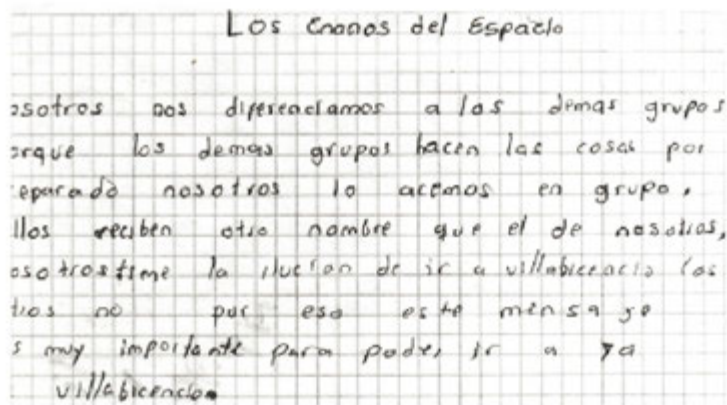 Los Enanos del Espacio
osotros nos diferenciamos a los demas grupos
orque los demas grupos hacen las cosas por
eparado nosotros lo acemos en grupo,
llos reciben otro nombre que el de nosotros,
osotros tiene la ilucion de ir a villabicencio los
tros no por eso este mensaje
s muy importante para poder ir a
villabicencio.